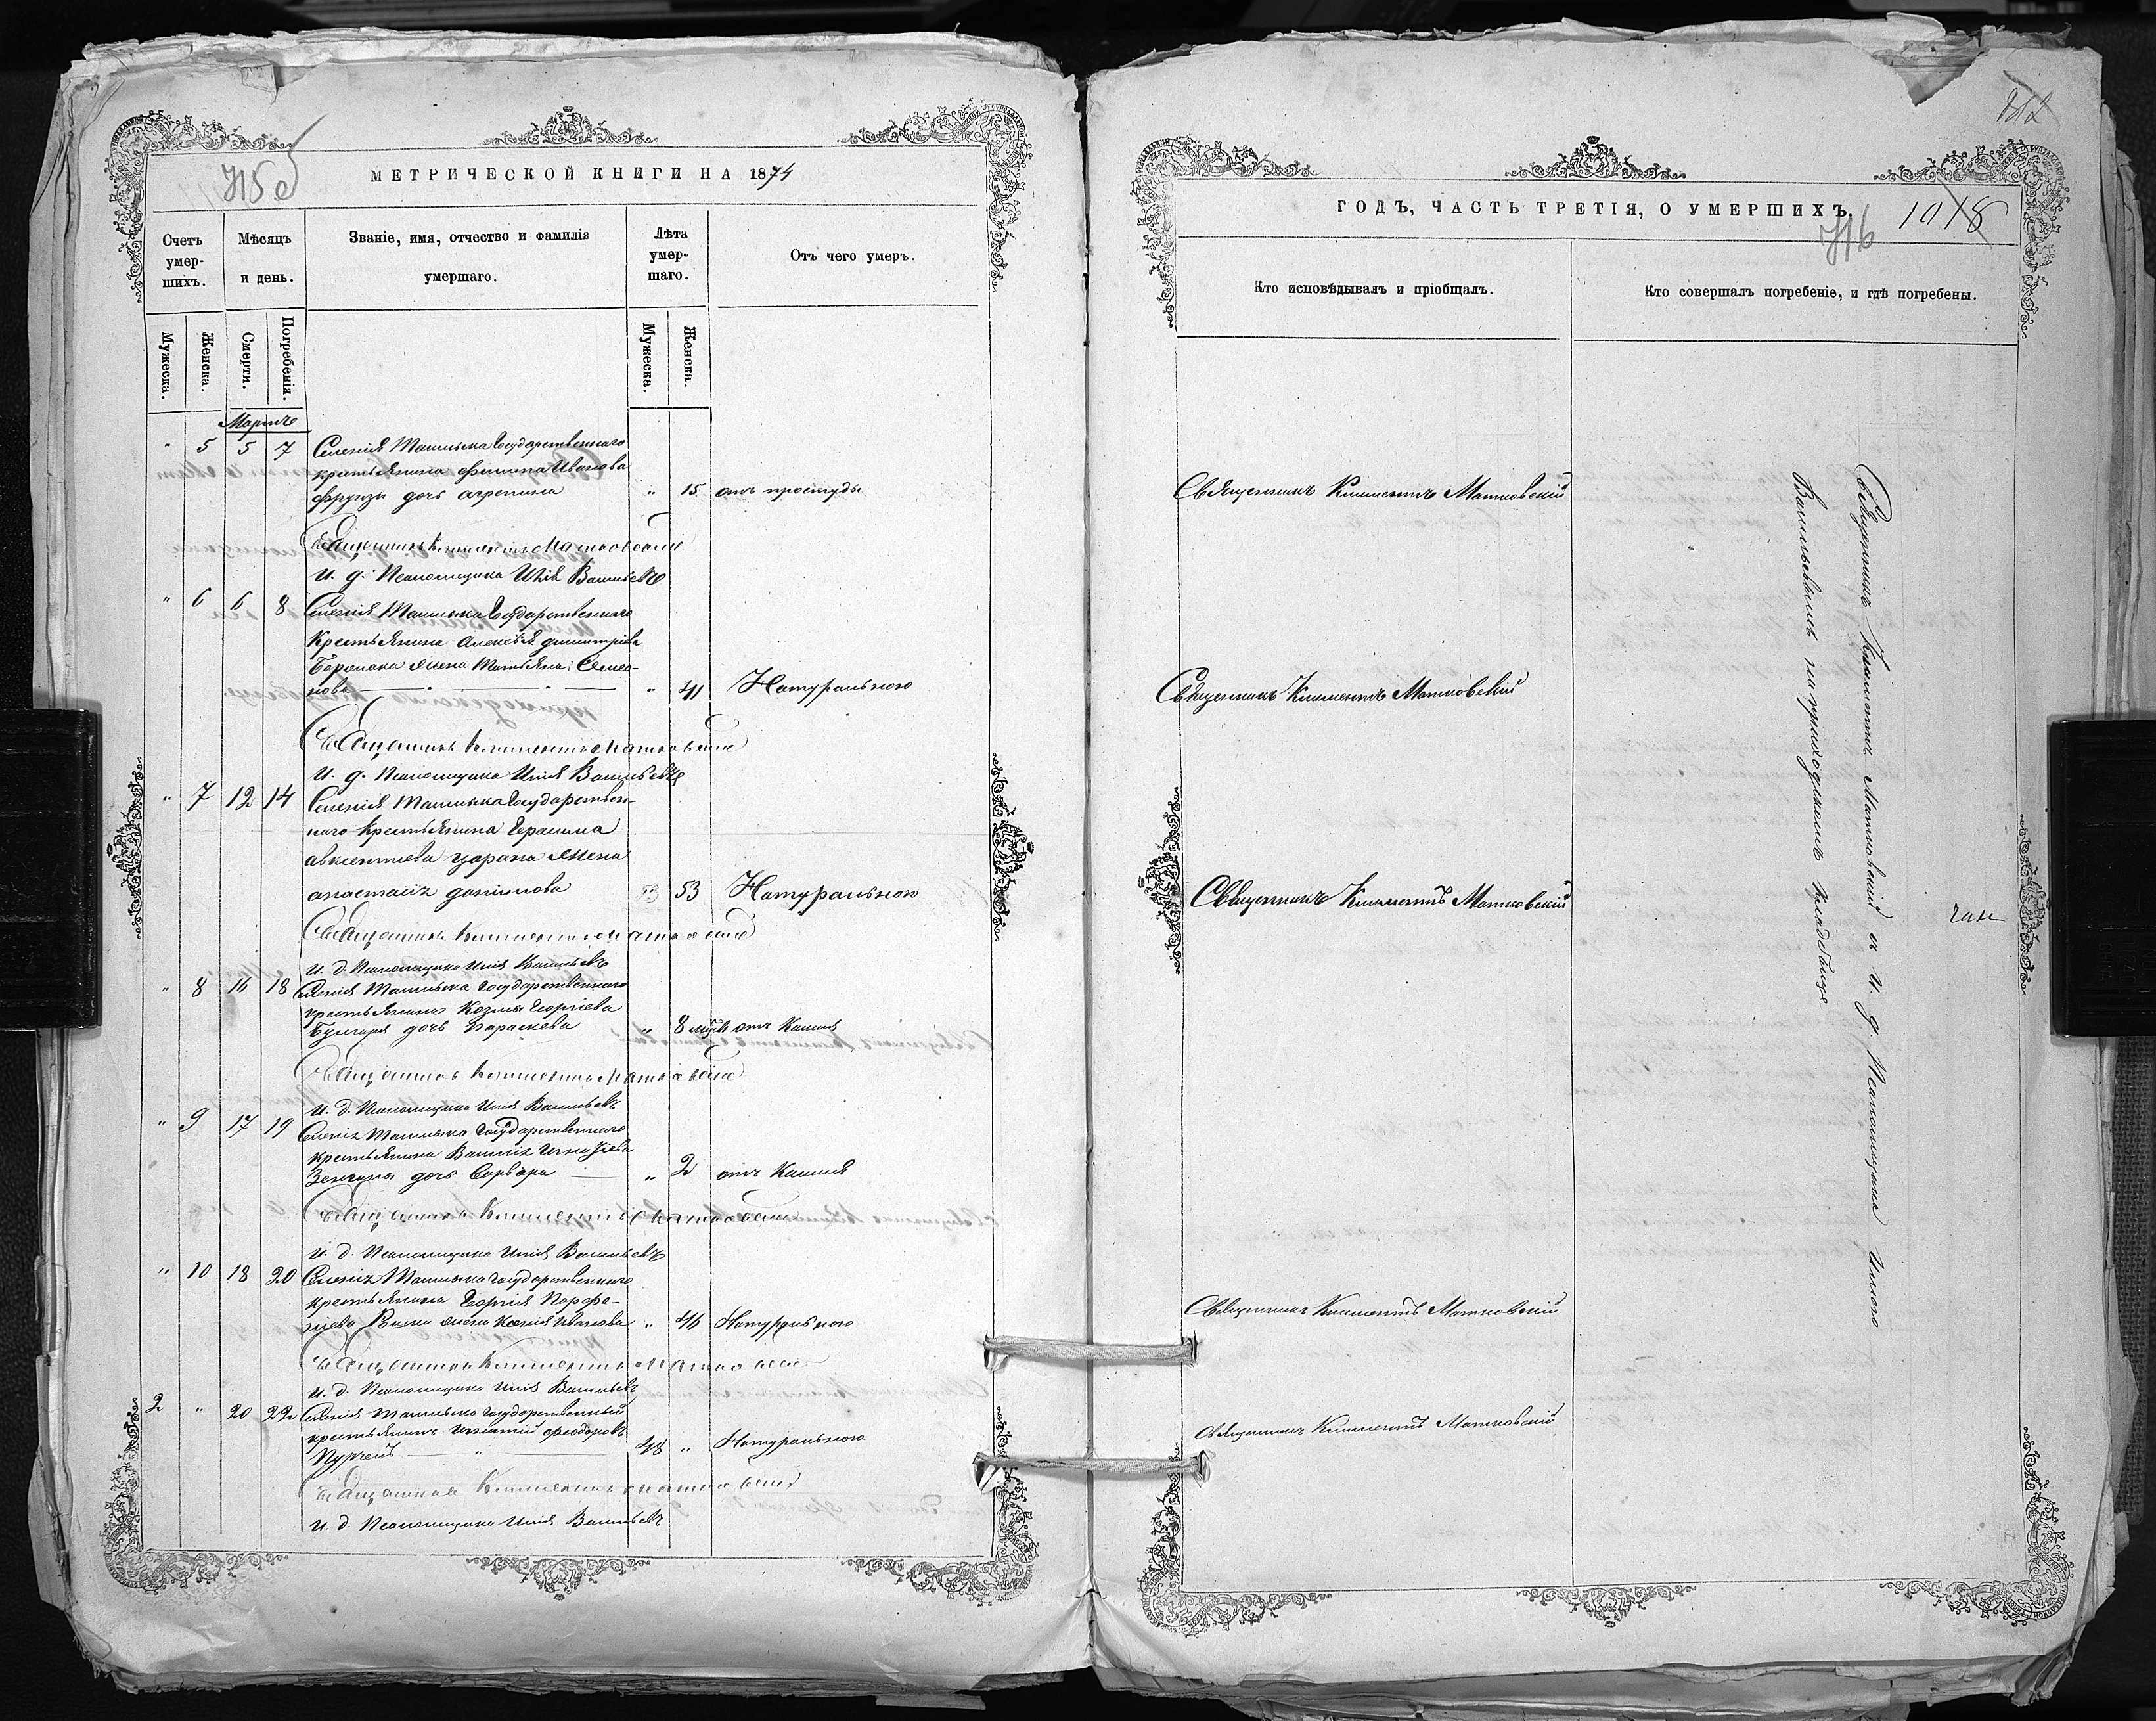 МЕТРИЧЕСКОЙ КНИГИ НА 1874
715
Счетъ умер-шихъ.
Мѣсяцъ и день.
Званіе, имя, отчество и фамилія умершаго.
Лѣта умер-шаго.
Отъ чего умеръ.
Мужеска.
Женска.
Смерти.
Погребенія.
Мужеска.
Женска.
Мартъ
" 5 5 7 Селенія Ташлыка Государственнаго
крестьянина Филипа Иванова
Фрунзи дочь Агрепина " 15 отъ простуды
Священникъ Климентъ Матковскій
И. д. Псаломщика Илія Васильевъ
" 6 6 8 Селенія Ташлыка Государственнаго
Крестьянина Алексѣя Димитріева
жена Татьяна Симео-
нова " 41 Натуральною
Священникъ Климентъ Матковскій
И. д. Псаломщика Илія Васильевъ
" 7 12 14 Селенія Ташлыка Государствен-
наго Крестьянина Герасима
Авксентіева Царана жена
Анастасія Данилова " 53 Натуральною
Священникъ Климентъ Матковскій
И. д. Псаломщика Илія Васильевъ
" 8 16 18 Селенія Ташлыка Государственнаго
крестьянина Козмы Георгіева
Булгаря дочь Параскева " 8 мѣс. отъ Кашля
Священникъ Климентъ Матковскій
И. д. Псаломщика Илія Васильевъ
" 9 17 19 Селенія Ташлыка Государственнаго
крестьянина Василія Игнатіева
дочь Варвара " 2 отъ Кашля
Священникъ Климентъ Матковскій
И. д. Псаломщика Илія Васильевъ
" 10 18 20 Селенія Ташлыка Государственнаго
крестьянина Георгія Порфи-
ріева жена Ксенія Иванова " 46 Натурального
Священникъ Климентъ Матковскій
И. д. Псаломщика Илія Васильевъ
2 " 20 22 Селенія Ташлыка Государственный
крестьянинъ Игнатій Феодоровъ
Пурчелъ 48 " Натурального
Священникъ Климентъ Матковскій
И. д. Псаломщика Илія Васильевъ
ГОДЪ, ЧАСТЬ ТРЕТІЯ, О УМЕРШИХЪ.
1018
716
Кто исповѣдывалъ и пріобщалъ.
Кто совершалъ погребеніе, и гдѣ погребены.
Священникъ Климентъ Матковскій
Священникъ Климентъ Матковскій
Священникъ Климентъ Матковскій
Священникъ Климентъ Матковскій
Священникъ Климентъ Матковскій
Священникъ Климентъ Матковскій съ И. д. Псаломщика Иліею
Васильевымъ на приходскомъ кладбище